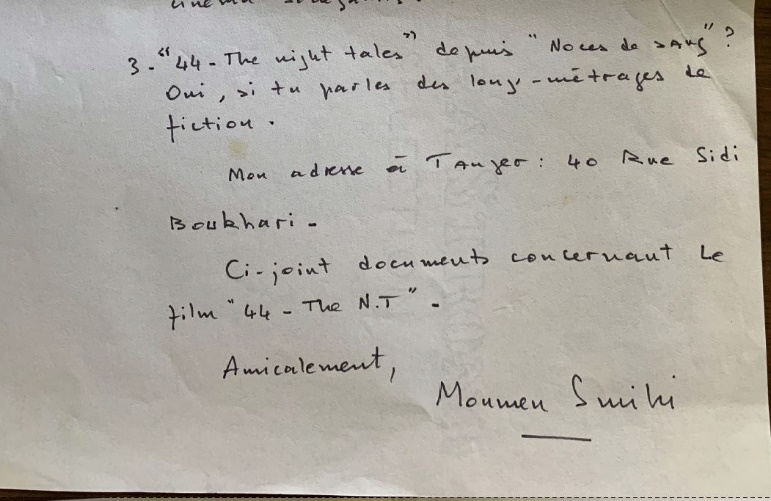 cinéma
3 - "44 - The night tales" depuis "Noces de sang" ?
Oui, si tu parles des long-métrages de
fiction.
Mon adresse à Tanger : 40 Rue Sidi
Boukhari -
Ci-joint documents concernant Le
film "44 - The N.T" -
Amicalement,
Moumen Smihi